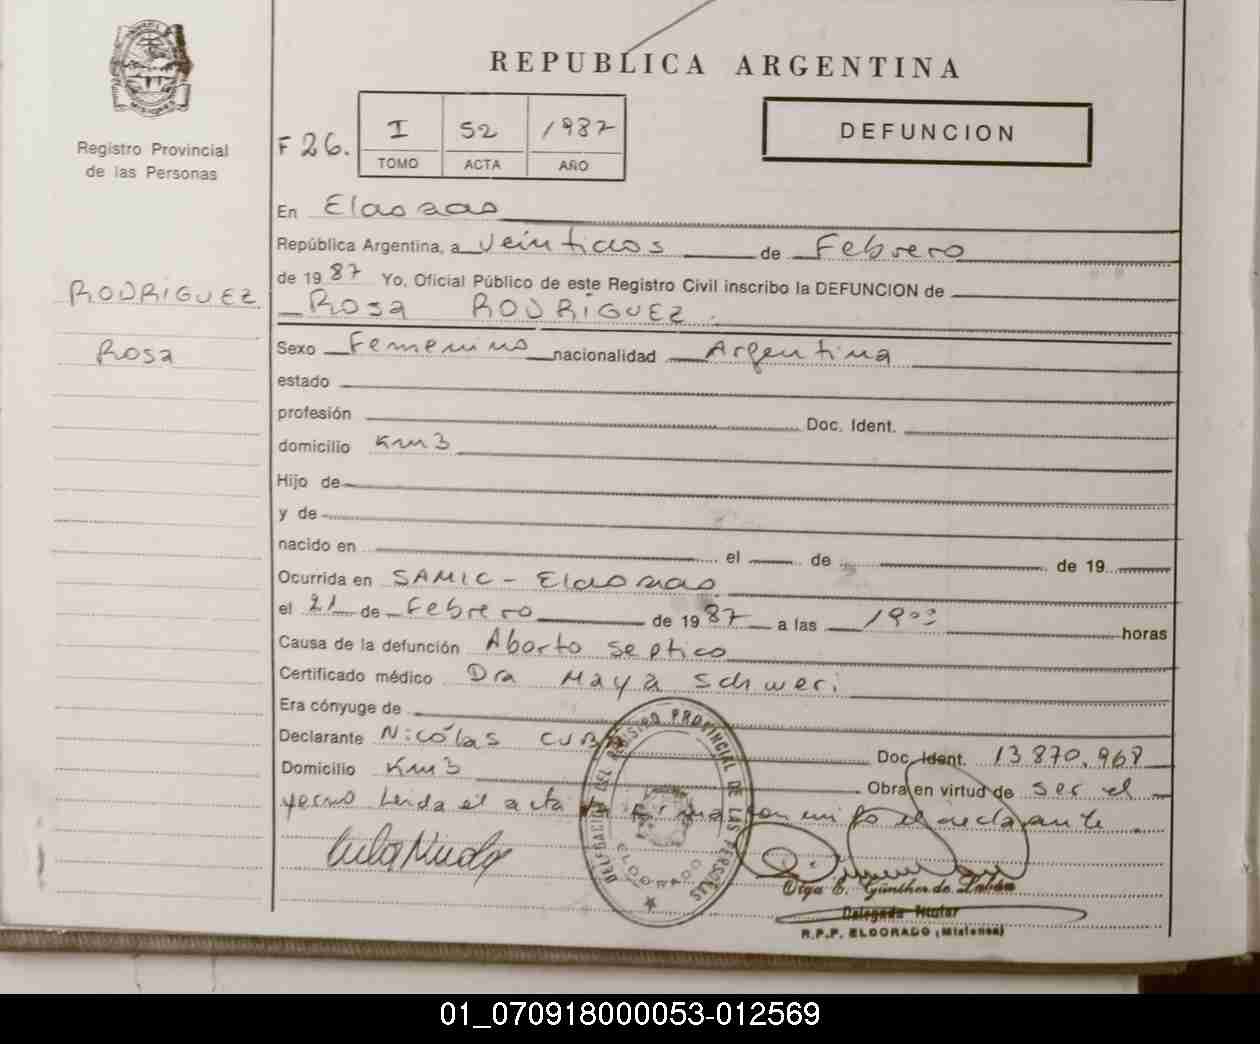 REPUBLICA ARGENTINA
Registro Provincial
de las Personas
F 26.
I 52 1987
TOMO ACTA AÑO
DEFUNCION
RODRIGUEZ
Rosa
En Eldorado
República Argentina, a veintidos de Febrero
de 1987 Yo, Oficial Público de este Registro Civil inscribo la DEFUNCION de
Rosa RODRIGUEZ.
Sexo Femenino nacionalidad Argentina
estado
profesión Doc. Ident.
domicilio Km 3
Hijo de
y de
nacido en el de de 19
Ocurrida en SAMIC - Eldorado
el 21 de Febrero de 1987 a las 19 00 horas
Causa de la defunción Aborto septico
Certificado médico Dra Maya Schweri
Era cónyuge de
Declarante Nicólas CUBA Doc. Ident. 13.870.968
Domicilio Km 3 Obra en virtud de ser el
yerno Leida el acta la firma conmigo el declarante.
Cuba Nicolas
DELEGACION DEL REGISTRO PROVINCIAL DE LAS PERSONAS
ELDORADO
Olga E. Günther de
Delegada Titular
R.P.P. ELDORADO (Misiones)
01_070918000053-012569